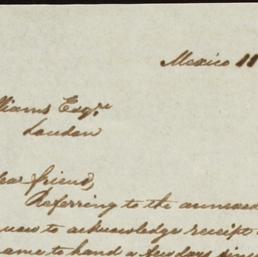 Mexico 11
lliams Esqre
London
ear friend,
Referring to the annexed
now to acknowledge receipt
came to hand a few days since